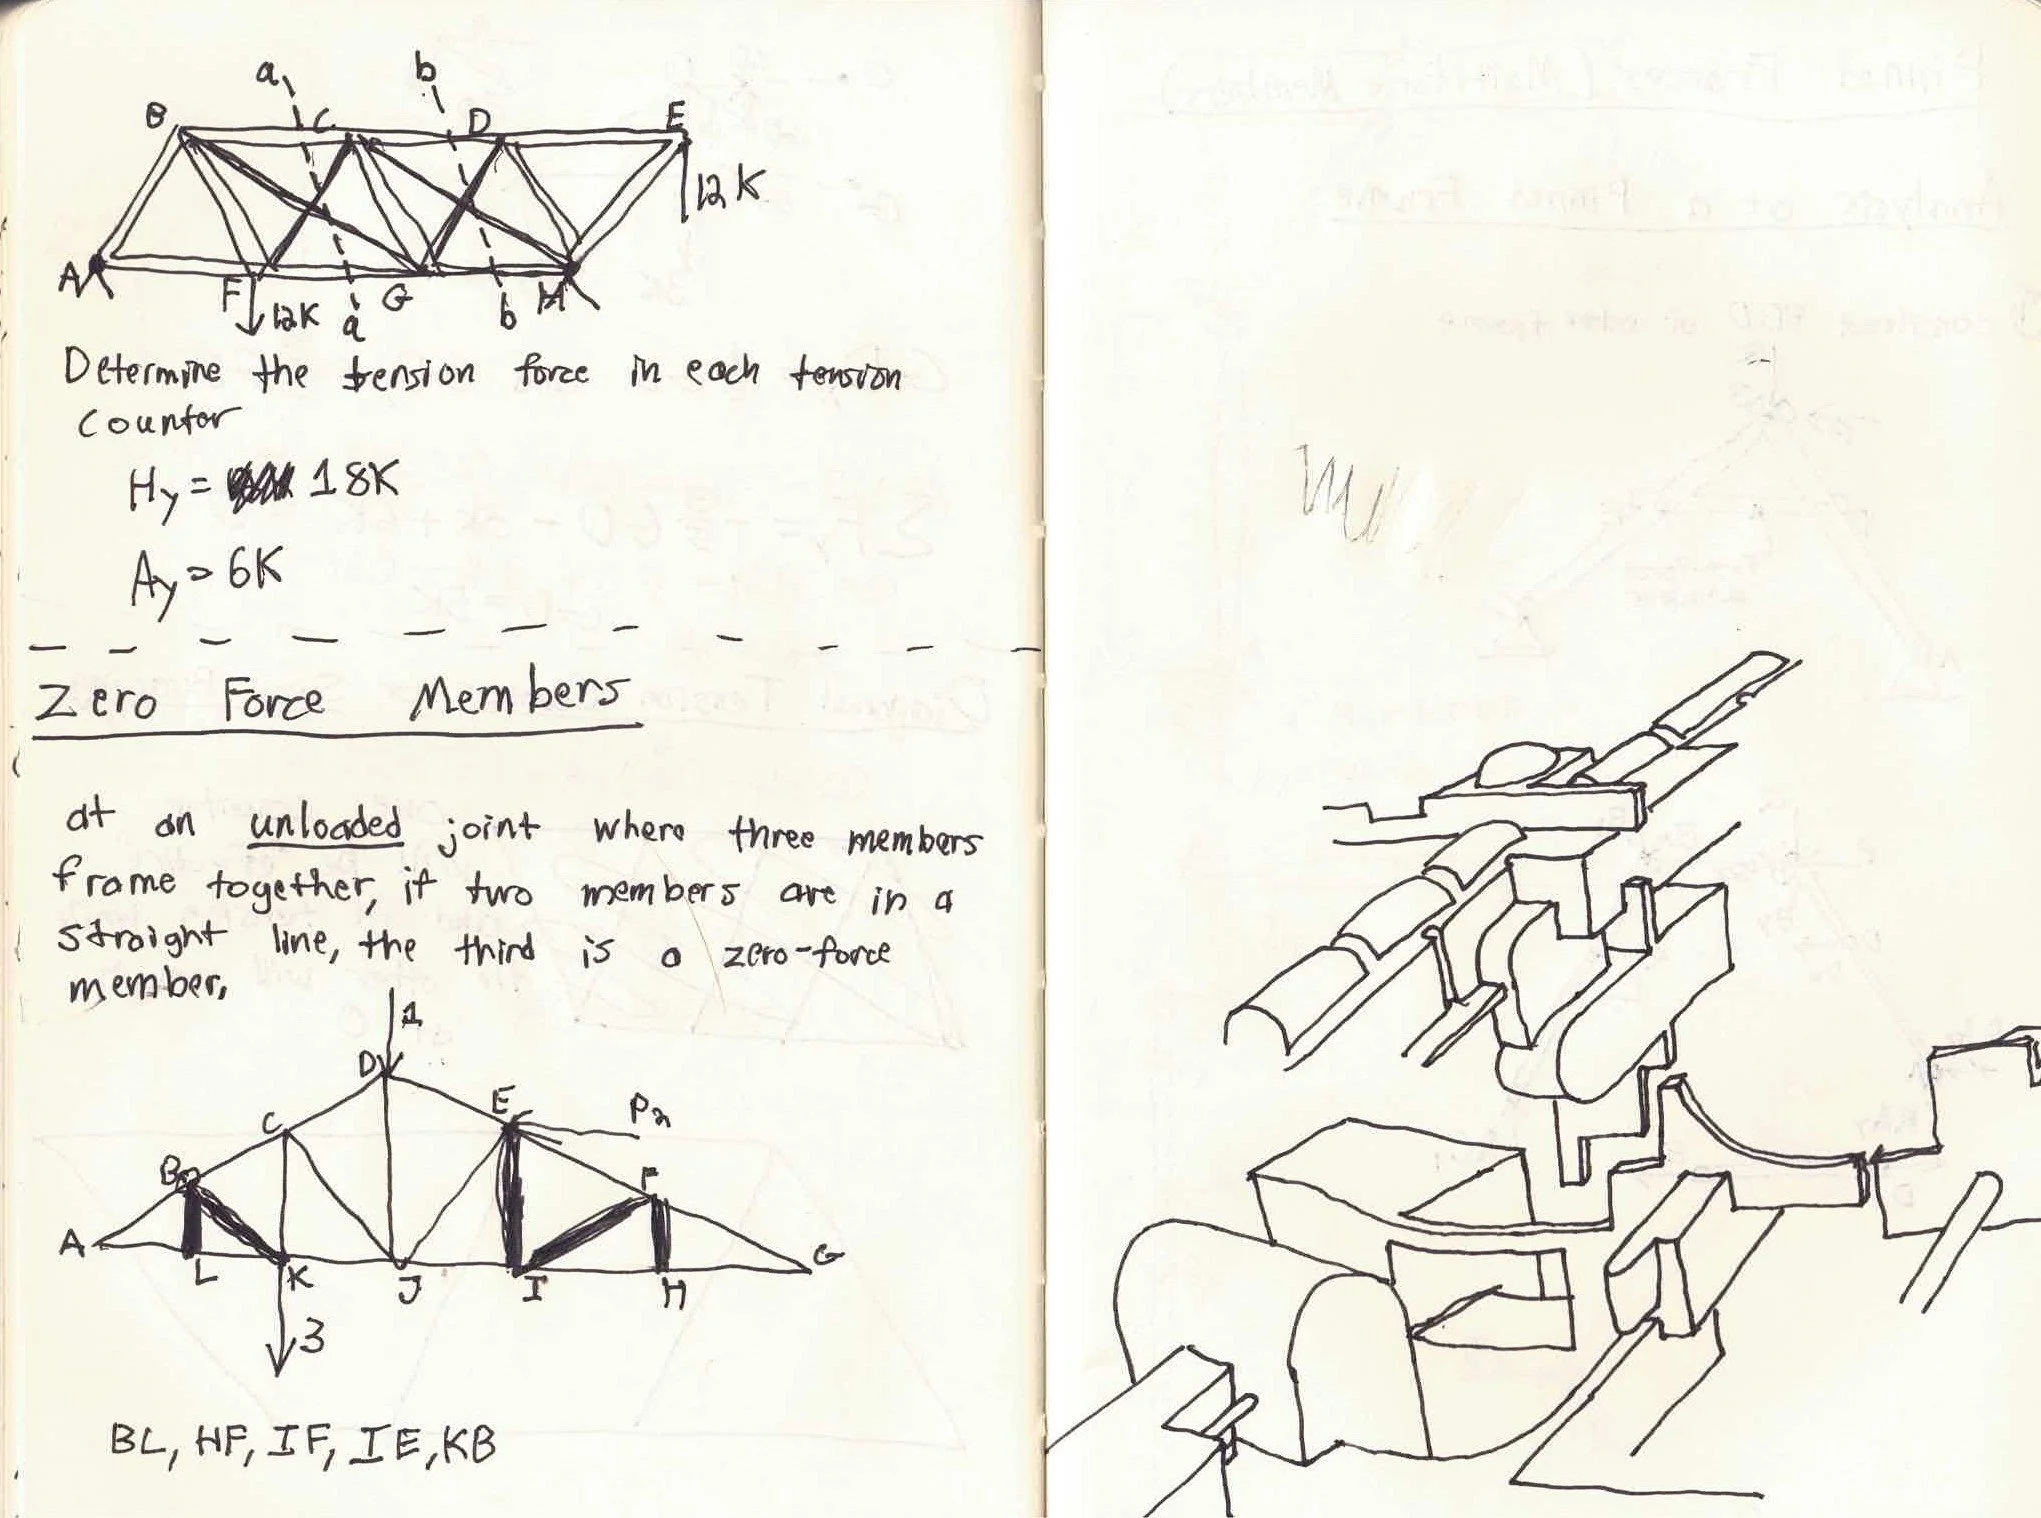 a b
B C D E
12K
A F G H
12K a b
Determine the tension force in each tension
counter
Hy = 18K
Ay = 6K
Zero Force Members
at an unloaded joint where three members
frame together, if two members are in a
straight line, the third is a zero-force
member,
1
D
C E P2
B F
A G
L K J I H
3
BL, HF, IF, IE, KB